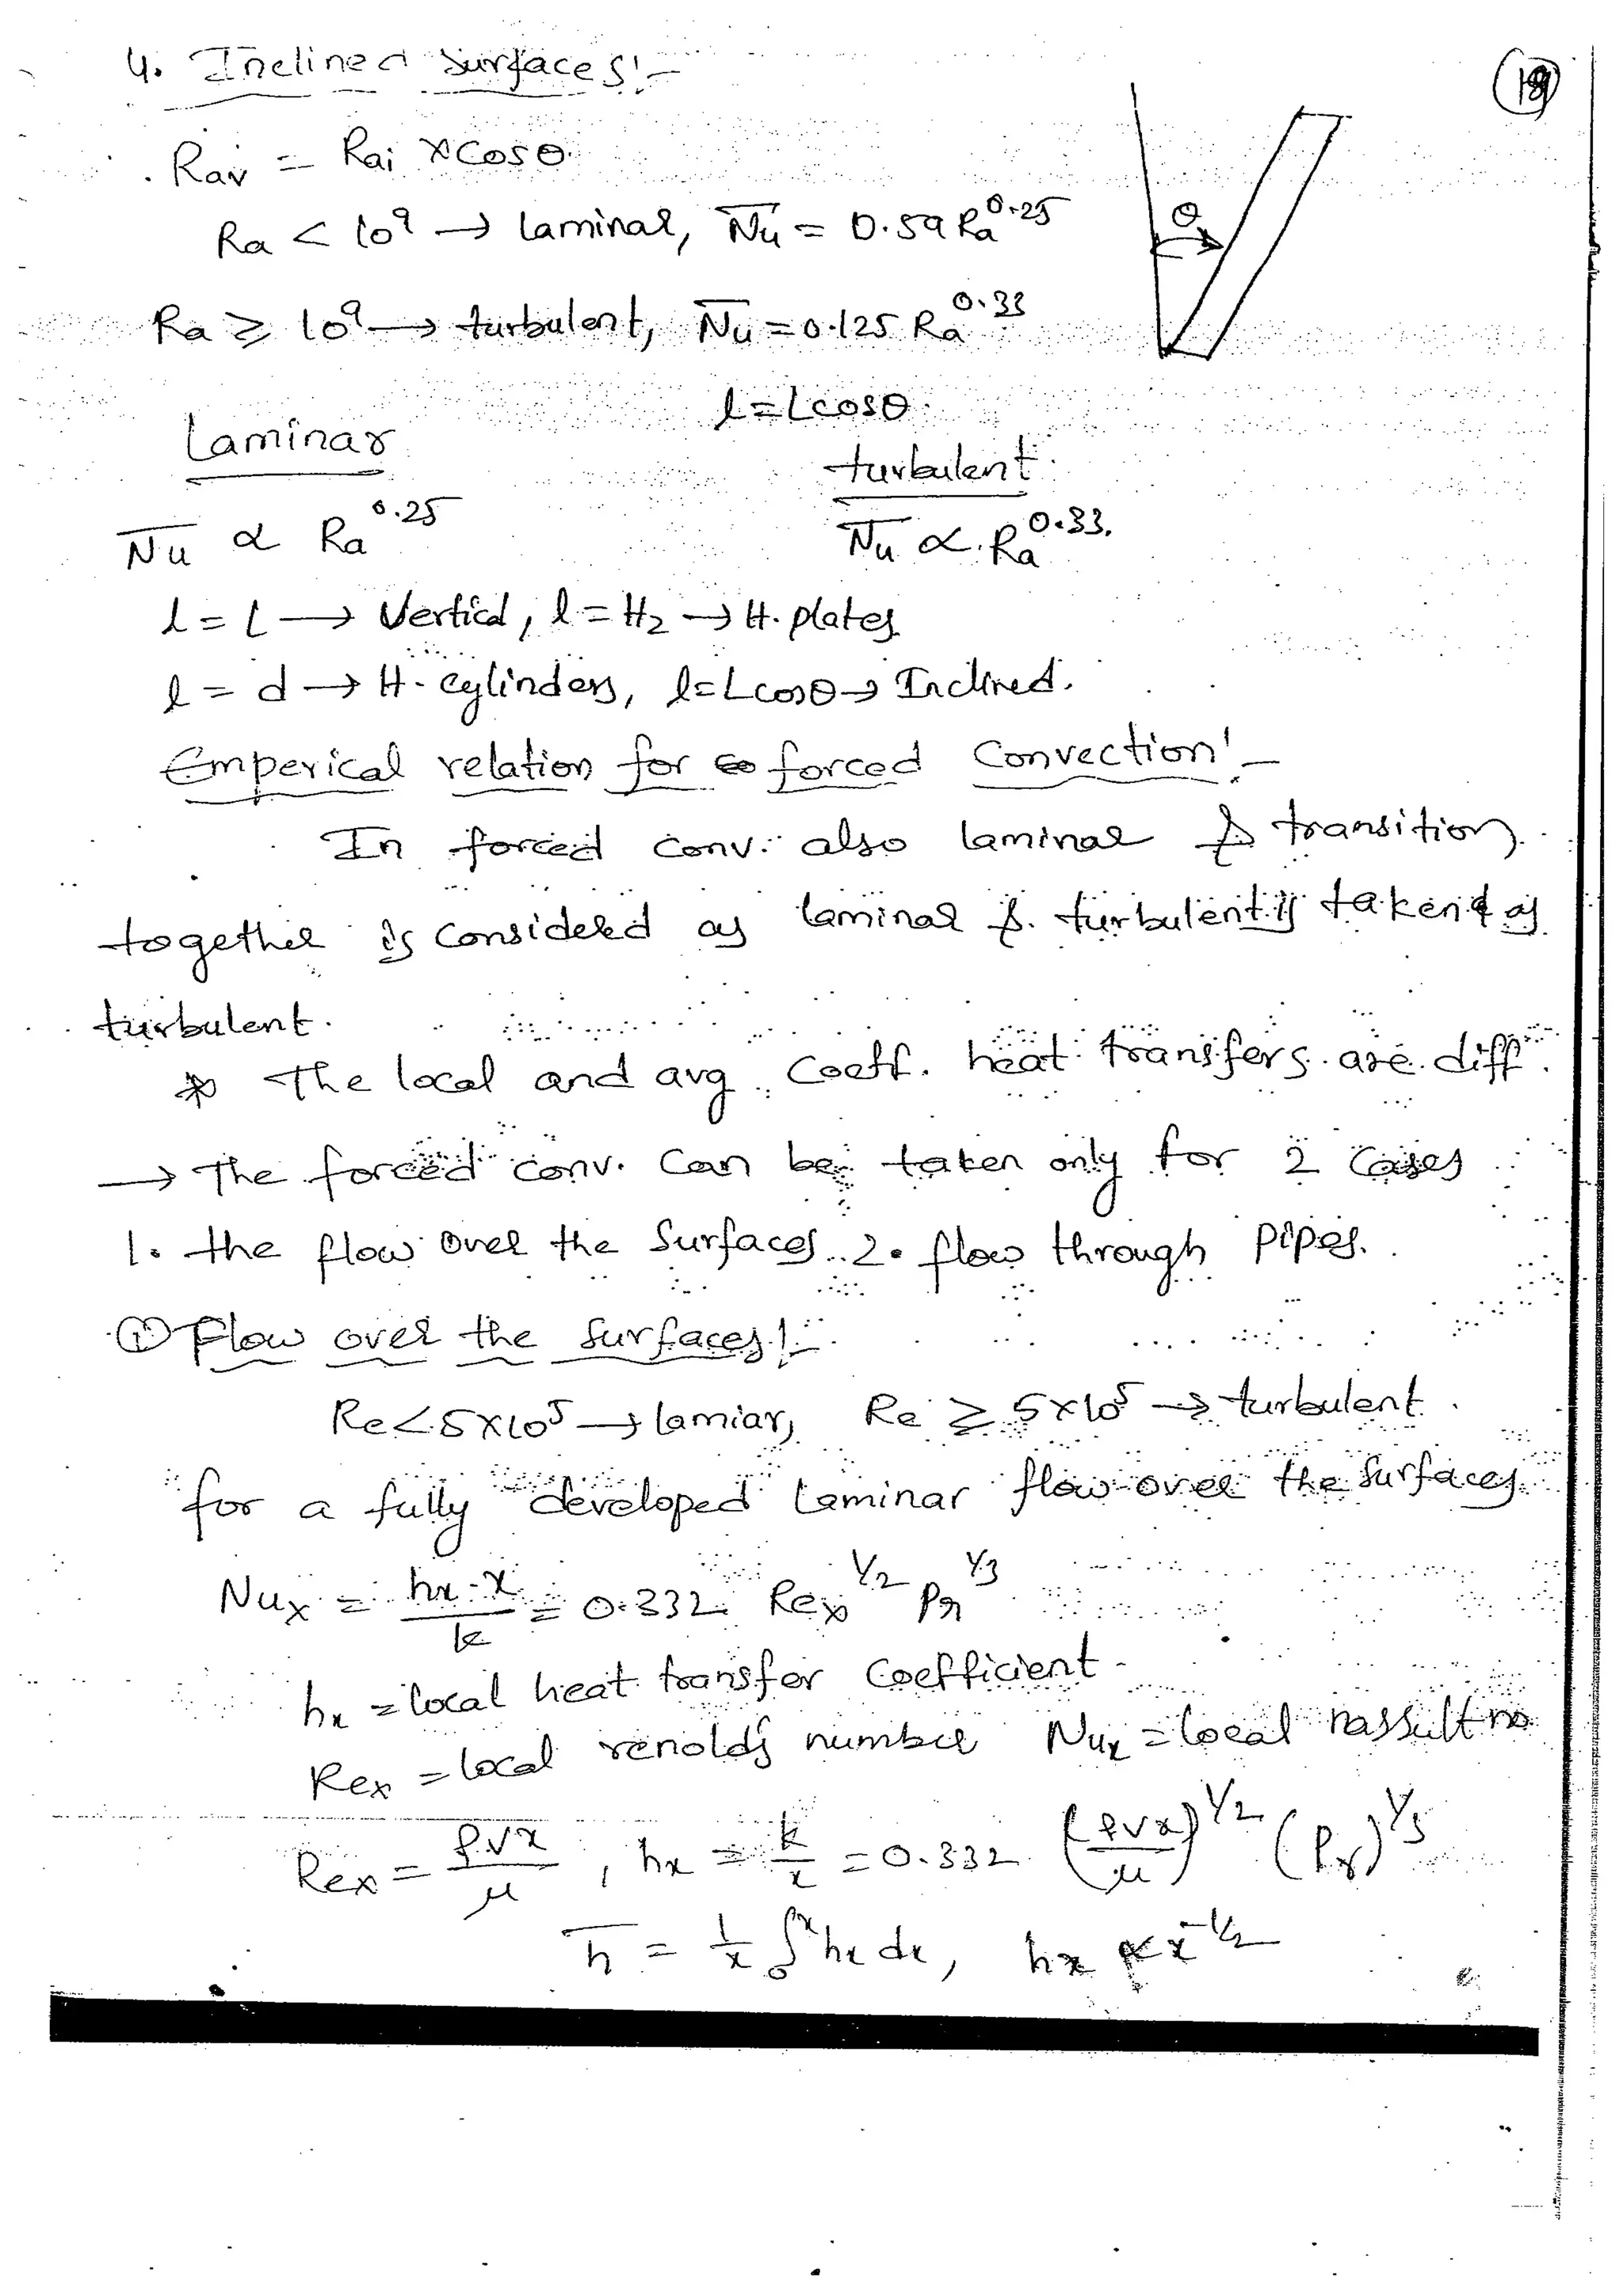 4. Inclined Surfaces:-
19
Rav = Rai × Cosθ
θ
Ra < 10⁹ → laminar, N̅u̅ = 0.59 Ra^0.25
Ra ≥ 10⁹ → turbulent, N̅u̅ = 0.125 Ra^0.33
l = Lcosθ.
Laminar turbulent
N̅u̅ ∝ Ra^0.25 N̅u̅ ∝ Ra^0.33.
l = L → Vertical, l = H₂ → H. plates
l = d → H. cylinders, l = Lcosθ → Inclined.
Emperical relation for forced Convection:-
In forced conv. also laminar & transition
together is considered as laminar & turbulent is taken as
turbulent.
* The local and avg. Coeff. heat transfers are diff.
→ The forced conv. Can be taken only for 2 Cases
1. the flow over the Surfaces. 2. flow through pipes.
① Flow over the surfaces:-
Re < 5×10⁵ → lamiar, Re ≥ 5×10⁵ → turbulent.
for a fully developed Laminar flow over the surfaces
Nux = hx·x/k = 0.332 Rex^1/2 Pr^1/3
hx = local heat transfer Coefficient
Rex = local renolds number Nux = local nassult no
Rex = ρvx/μ, hx = k/x = 0.332 (ρvx/μ)^1/2 (Pr)^1/3
h̅ = 1/x ∫₀ˣ hx dx, hx ∝ x^-1/2